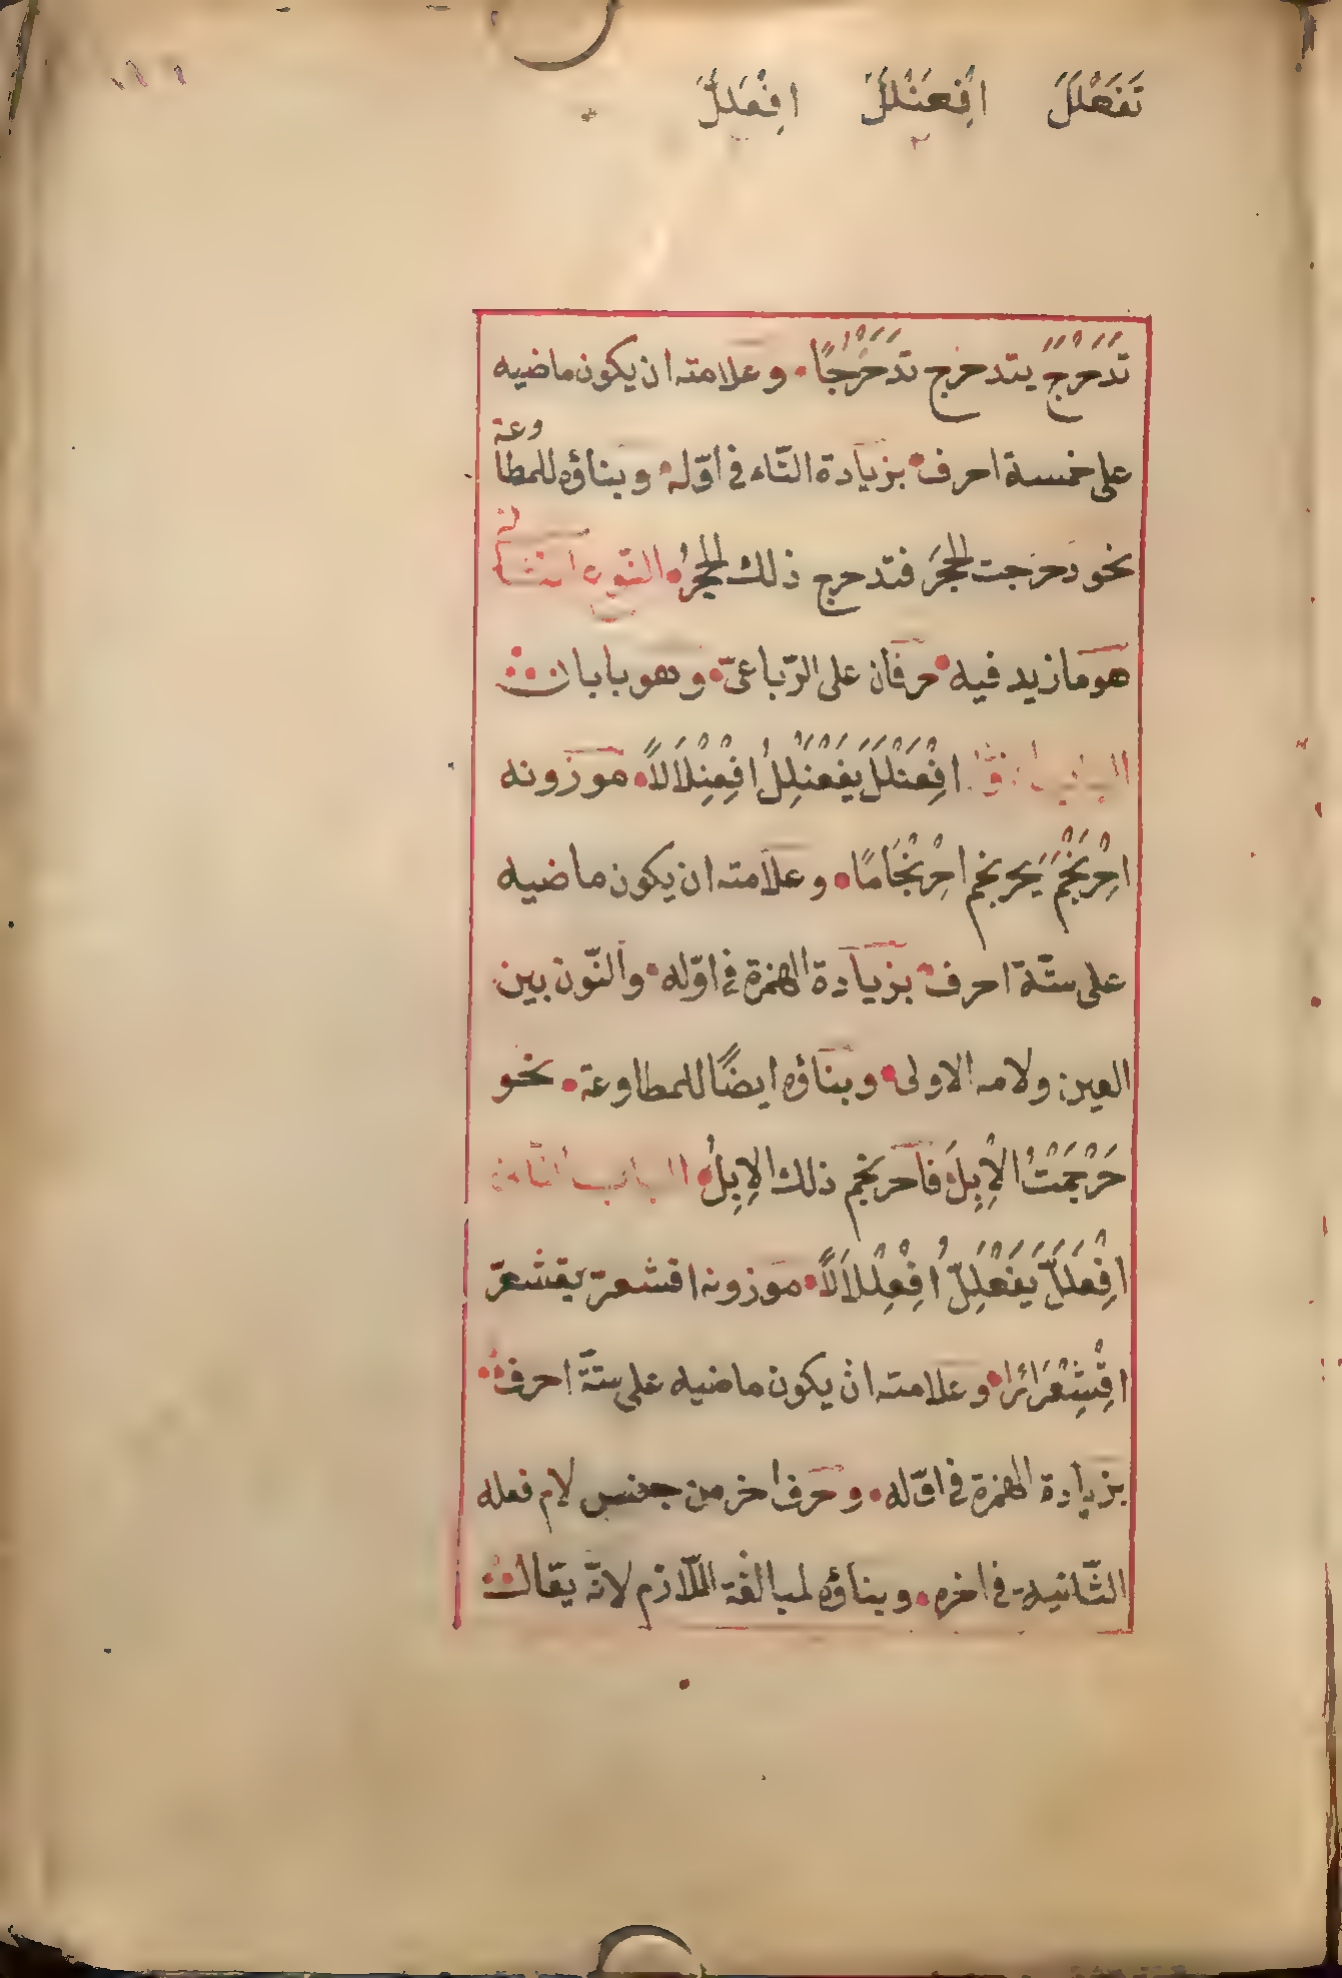 تَفَعْلَلَ افْعَنْلَلَ افْعَلَلَّ
تَدَحْرَجَ يتدحرج تَدَحْرُجًا وعلامته ان يكون ماضيه
على خمسة احرف بزيادة التّاء فى اوّله وبناؤه للمطاوعة
نحو دحرجت الحجرَ فتدحرج ذلك الحجرُ النّوع الثانى
هو ما زيد فيه حرفان على الرّباعىّ وهو بابان
الباب الاوّل افْعَنْلَلَ يَفْعَنْلِلُ افْعِنْلَالًا موزونه
احْرَنْجَمَ يحرنجم احْرِنْجَامًا وعلامته ان يكون ماضيه
على ستّة احرف بزيادة الهمزة فى اوّله والنّون بين
العين ولامه الاولى وبناؤه ايضًا للمطاوعة نحو
حَرْجَمْتُ الْاِبِلَ فاحرنجم ذلك الاِبِلُ الباب الثانى
افْعَلَلَّ يَفْعَلِلُّ افْعِلْلَالًا موزونه اقشعرّ يقشعرّ
اقْشِعْرَائرا وعلامته ان يكون ماضيه على ستّة احرف
بزيادة الهمزة فى اوّله وحرف اخر من جنس لام فعله
الثّانيه فى اخره وبناؤه لمبالغة اللّازم لانّه يقال